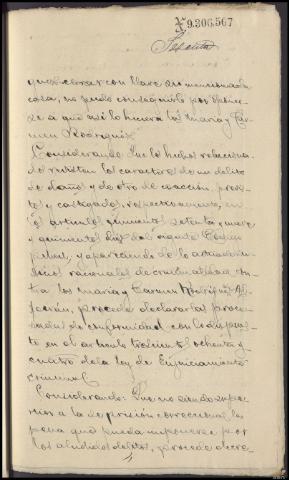 X 9.306,567
Sesenta
que cerrar con llave su mencionada
casa, no siendo conseguirlo por
a que así lo hiciera las María y Car-
men Rodriguez.
Considerando: Que los hechos relaciona-
dos revisten los caracteres de un delito
de daños y de otro de coacción, previs-
tos y castigados, respectivamente, en
los artículos quinientos setenta y nueve
y quinientos diez del vigente Código
penal, y apareciendo de lo actuado in-
dicios racionales de criminalidad con-
tra las María y Carmen Rodriguez
procede declararlas proce-
sadas de conformidad con lo dispues-
to en el artículo trescientos ochenta y
cuatro de la ley de Enjuiciamiento
criminal.
Considerando: Que no siendo supe-
rior a la de prisión correccional la
pena que pueda imponerse por
los aludidos delitos, procede decre-